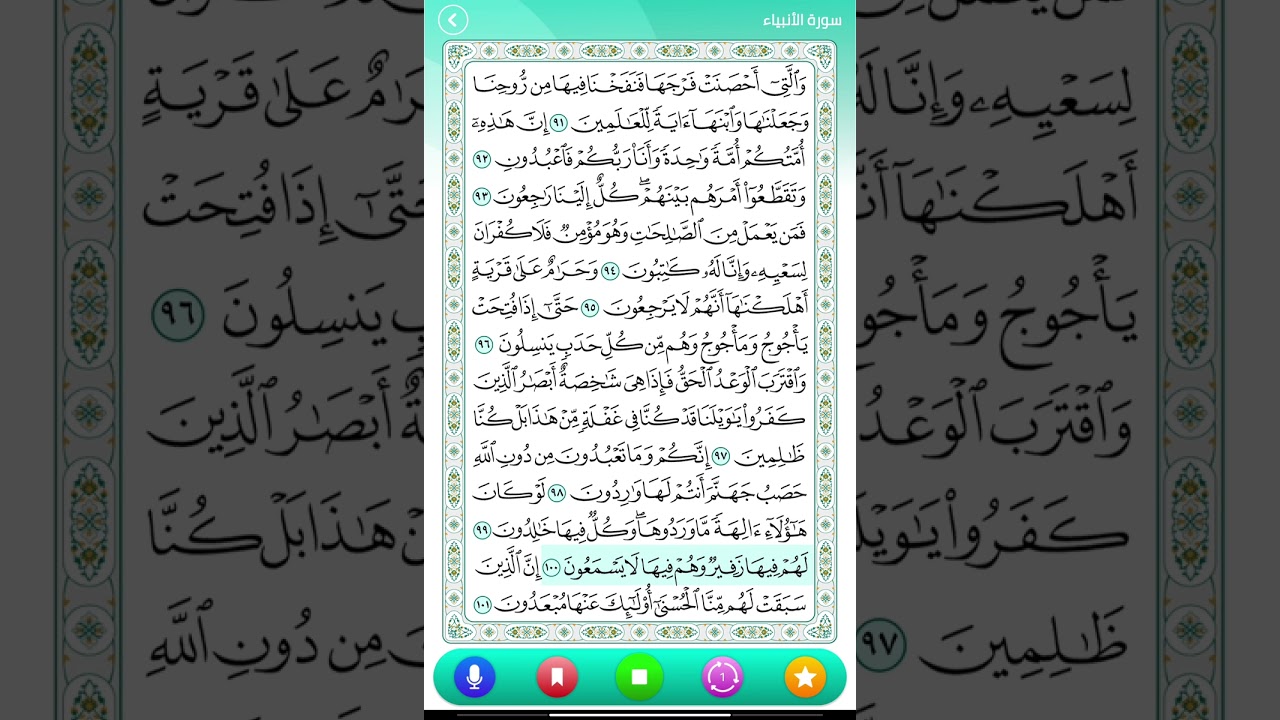 سورة الأنبياء
وَٱلَّتِىٓ أَحْصَنَتْ فَرْجَهَا فَنَفَخْنَا فِيهَا مِن رُّوحِنَا
وَجَعَلْنَٰهَا وَٱبْنَهَآ ءَايَةً لِّلْعَٰلَمِينَ ٩١ إِنَّ هَٰذِهِۦٓ
أُمَّتُكُمْ أُمَّةً وَٰحِدَةً وَأَنَا۠ رَبُّكُمْ فَٱعْبُدُونِ ٩٢
وَتَقَطَّعُوٓا۟ أَمْرَهُم بَيْنَهُمْ ۖ كُلٌّ إِلَيْنَا رَٰجِعُونَ ٩٣
فَمَن يَعْمَلْ مِنَ ٱلصَّٰلِحَٰتِ وَهُوَ مُؤْمِنٌ فَلَا كُفْرَانَ
لِسَعْيِهِۦ وَإِنَّا لَهُۥ كَٰتِبُونَ ٩٤ وَحَرَٰمٌ عَلَىٰ قَرْيَةٍ
أَهْلَكْنَٰهَآ أَنَّهُمْ لَا يَرْجِعُونَ ٩٥ حَتَّىٰٓ إِذَا فُتِحَتْ
يَأْجُوجُ وَمَأْجُوجُ وَهُم مِّن كُلِّ حَدَبٍ يَنسِلُونَ ٩٦
وَٱقْتَرَبَ ٱلْوَعْدُ ٱلْحَقُّ فَإِذَا هِىَ شَٰخِصَةٌ أَبْصَٰرُ ٱلَّذِينَ
كَفَرُوا۟ يَٰوَيْلَنَا قَدْ كُنَّا فِى غَفْلَةٍ مِّنْ هَٰذَا بَلْ كُنَّا
ظَٰلِمِينَ ٩٧ إِنَّكُمْ وَمَا تَعْبُدُونَ مِن دُونِ ٱللَّهِ
حَصَبُ جَهَنَّمَ أَنتُمْ لَهَا وَٰرِدُونَ ٩٨ لَوْ كَانَ
هَٰٓؤُلَآءِ ءَالِهَةً مَّا وَرَدُوهَا ۖ وَكُلٌّ فِيهَا خَٰلِدُونَ ٩٩
لَهُمْ فِيهَا زَفِيرٌ وَهُمْ فِيهَا لَا يَسْمَعُونَ ١٠٠ إِنَّ ٱلَّذِينَ
سَبَقَتْ لَهُم مِّنَّا ٱلْحُسْنَىٰٓ أُو۟لَٰٓئِكَ عَنْهَا مُبْعَدُونَ ١٠١
1